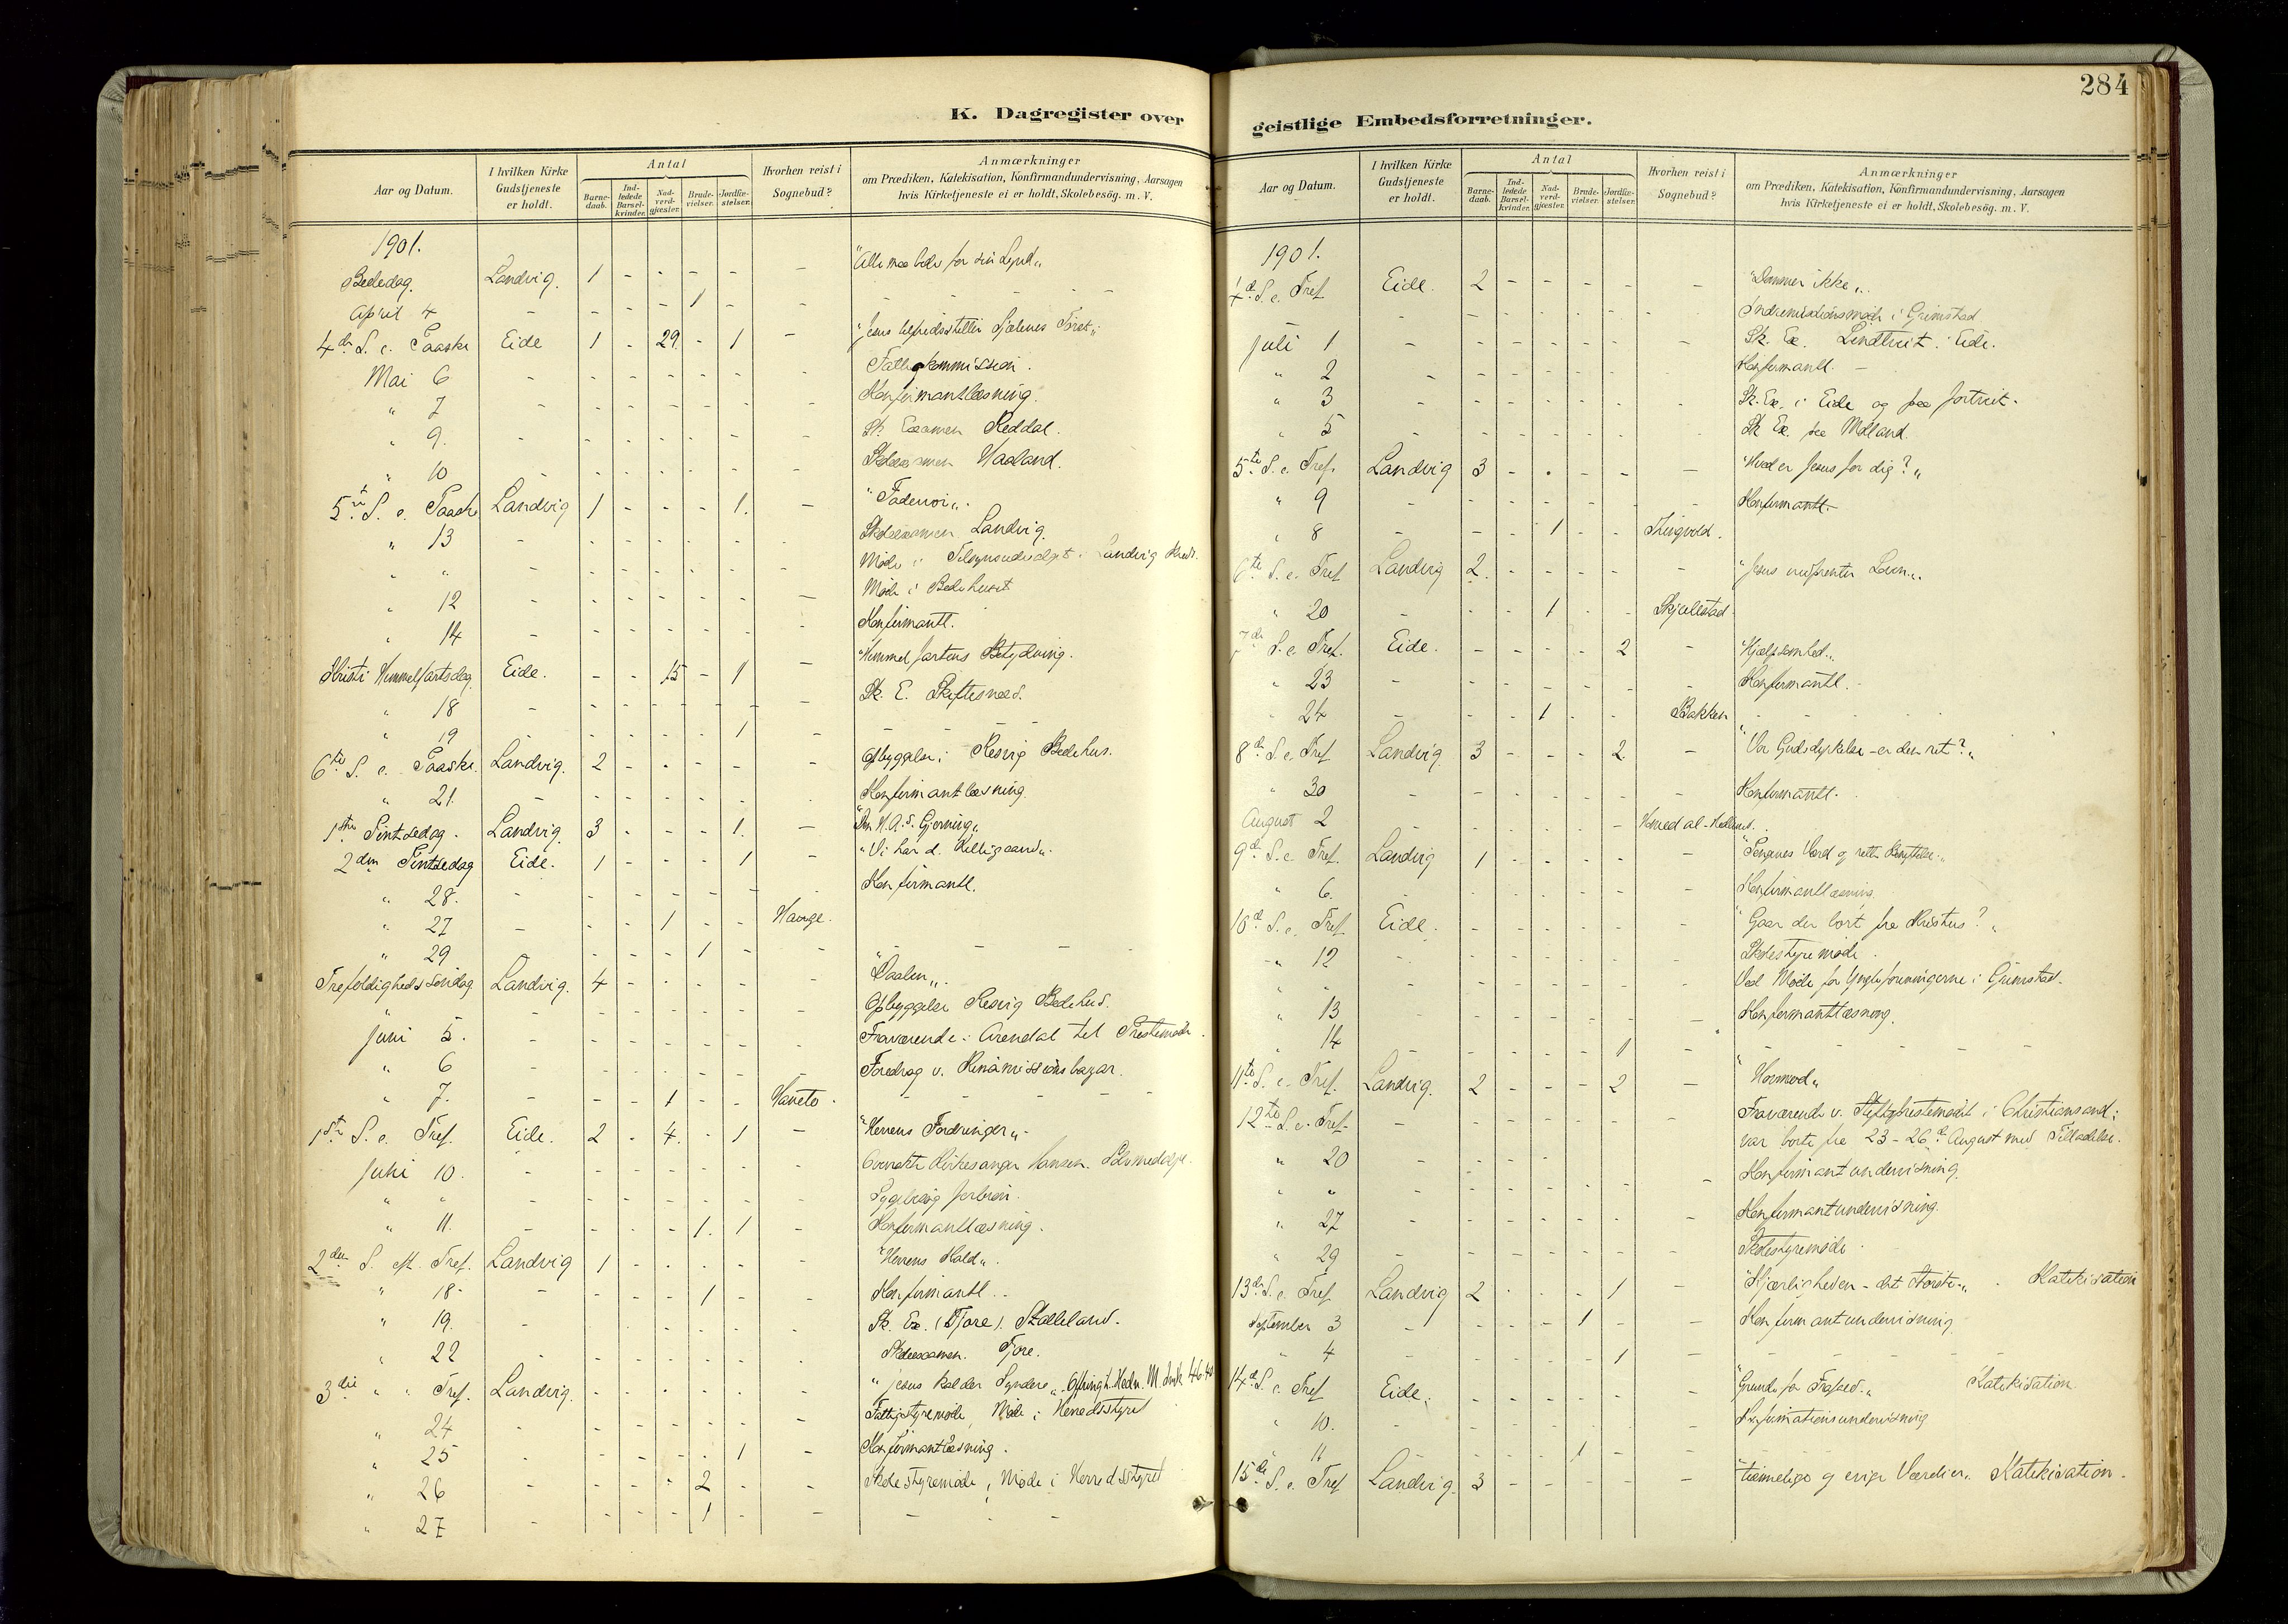 K. Dagregister over
Aar og Datum. I hvilken Kirke Gudstjeneste er holdt. Antal Barnedaab. Indledede Barselkvinder. Nadverdgjæster. Brudevielser. Jordfæstelser. Hvorhen reist i Sognebud? Anmærkninger om Prædiken, Katekisation, Konfirmandundervisning, Aarsagen hvis Kirketjeneste ei er holdt, Skolebesög. m. V.
1901.
Bededag. Landvig. 1 - - - - - "Alle maa bede for sin Synd„
April 4 - - - - 1 - - -
4de S. e. Paaske Eide 1 - 29. - 1 - "Jesus tilfredsstiller Sjælenes Törst„
Mai 6 - - - - - - - Fattigkommission.
" 7 - - - - - - - Konfirmantlæsning.
" 9. - - - - - - - Sk. Examen Reddal.
" 10 - - - - - - - Skoleexamen Haaland.
5te S. e. Paaske Landvig 1 - - - 1. - "Fadervor„.
" 13 - - - - - - - Skoleexamen Landvig.
" " - - - - - - - Möde i Tilsynsudvalget i Landvig Kreds.
" 12 - - - - - - - Möde i Bedehuset
" 14 - - - - - - - Konfirmantl.
Kristi Himmelfartsdag. Eide. - - 15 - 1 - "Himmelfartens Betydning.
" 18 - - - - - - - Sk. E. Skiftesnæs.
" 19 - - - - - 1 - - -
6te S. e. Paaske. Landvig. 2 - - - - - Opbyggelse i Resvig Bedehus.
" 21. - - - - - - - Konfirmantlæsning.
1ste Pintsedag. Landvig. 3 - - - 1. - "Den H. A.s. Gjerning„
2den Pintsedag Eide. 1 - - - 1 - "Vi har d. Helligaand„.
" 28. - - - - - - - Konfirmantl.
" 27 - - - 1 - - Hauge.
" 29 - - - - 1 - - - - -
Trefoldigheds söndag Landvig. 4 - - - - - "Daaben„.
" - - - - - - - Opbyggelse Resvig Bedehus.
Juni 5. - - - - - - - Fraværende i Arendal til Prestemöde.
" 6 - - - - - - - Foredrag v. Kinamissions bazar.
" 7. - - - 1 - - Haveto. - - - -
1ste S. e. Tref. Eide. 2 - 4. - 1 - "Herrens Fordringer„
Juni 10. - - - - - - - Overrakte Kirkesanger Hansen. Sölvmedalje.
" " - - - - - - -
" 11. - - - - 1. 1 - Konfirmantlæsning.
2den S. eft. Tref. Landvig 1 - - - - - "Herrens Kald„.
" 18. - - - - 1 - - Konfirmantl.
" 19. - - - - - - - Sk. Ex. (Fjore). Skalleland.
" 22 - - - - - - - Skoleexamen. Fjore.
3die " " Tref. Landvig. - - - - - - "Jesus kalder Syndere„. Ofring t. Hedn. M.
" 24 - - - - - - - Fattigstyremöde, Möde i Herredsstyret
" 25 - - - - - 1 - Konfirmantlæsning.
" 26 - - - - 2 - - Skolestyremöde, Möde i Herredsstyret
" 27 - - - - 1 - - - - -
284
geistlige Embedsforretninger.
Aar og Datum. I hvilken Kirke Gudstjeneste er holdt. Antal Barnedaab. Indledede Barselkvinder. Nadverdgjæster. Brudevielser. Jordfæstelser. Hvorhen reist i Sognebud? Anmærkninger om Prædiken, Katekisation, Konfirmandundervisning, Aarsagen hvis Kirketjeneste ei er holdt, Skolebesög. m. V.
1901.
4de S. e. Tref Eide. 2 - - - - - "Dommer ikke„.
- - - - - - - Indremissionsmöde i Grimstad
Juli 1 - - - - - - - Sk. Ex. Lindtveit i Eide.
" 2 - - - - - - - Konfirmantl. -
" 3 - - - - - - - Sk. Ex. i Eide og paa Fortveit.
" 5 - - - - - - - Sk Ex. paa Molland.
5te S. e. Tref. Landvig 3 - - - - - "Hvad er Jesus for dig?„
" 9 - - - - - - - Konfirmantl.
" 8 - - - - 1 - - Tingvold.
6te S. e. Tref Landvig 2. - - - - - "Jesus
" 20 - - - 1 - - Skjællestad
7de S. e. Tref. Eide. - - - - 2 - "Hjælpsomhed„
" 23 - - - - - - - Konfirmantl.
" 24 - - - 1 - - Bakken - -
8de S. e. Tref Landvig. 3 - - - 2. - "Vor Gudsdyrkelse - er den ret?„
" 30 - - - - - - - Konfirmantl.
August 2 - - - - - - Homedal
9de S. e. Tref. Landvig 1 - - - - - "Pengenes Værd og rette Benyttelse„
" 6. - - - - - - - Konfirmantlæsning
10de S. e. Tref Eide. - - - - - - "Gaar du bort fra Kristus?„
" 12 - - - - - - - Skolestyremöde.
" - - - - - - - Ved Möde for Ynglingeforeningerne i Grimstad.
" 13 - - - - - - - Konfirmantlæsning.
" 14 - - - - - 1 - - - - -
11te S. e. Tref. Landvig. 2 - - - 2 - "Hovmod„
12te S. e. Tref. - - - - - - - Fraværende v. Stiftsprestemödet i Christiansand;
var borte fra 23-26de August med Tilladelse.
" 20 - - - - - - - Konfirmantundervisning.
" " - - - - - - -
" 27 - - - - - - - Konfirmantundervisning.
" 29 - - - - - - - Skolestyremöde.
13de S. e. Tref. Landvig 2 - - - 1 - "Kjærligheden - det störste„. Katekisation
September 3 - - - - 1 - - Konfirmantundervisning
" 4 - - - - - 1 - - - -
14de S. e Tref Eide. - - - - - - "Grunde for Frafald„ Katekisation.
" 10. - - - - - - - Konfirmationsundervisning
" 11 - - - - 1 - -
15de S. e. Tref Landvig. 3 - - - - - "Timelige og evige Værdier„ Katekisation.